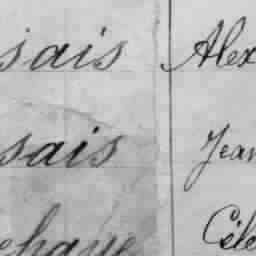 sais Alex
sais Jean
ehaye Céle